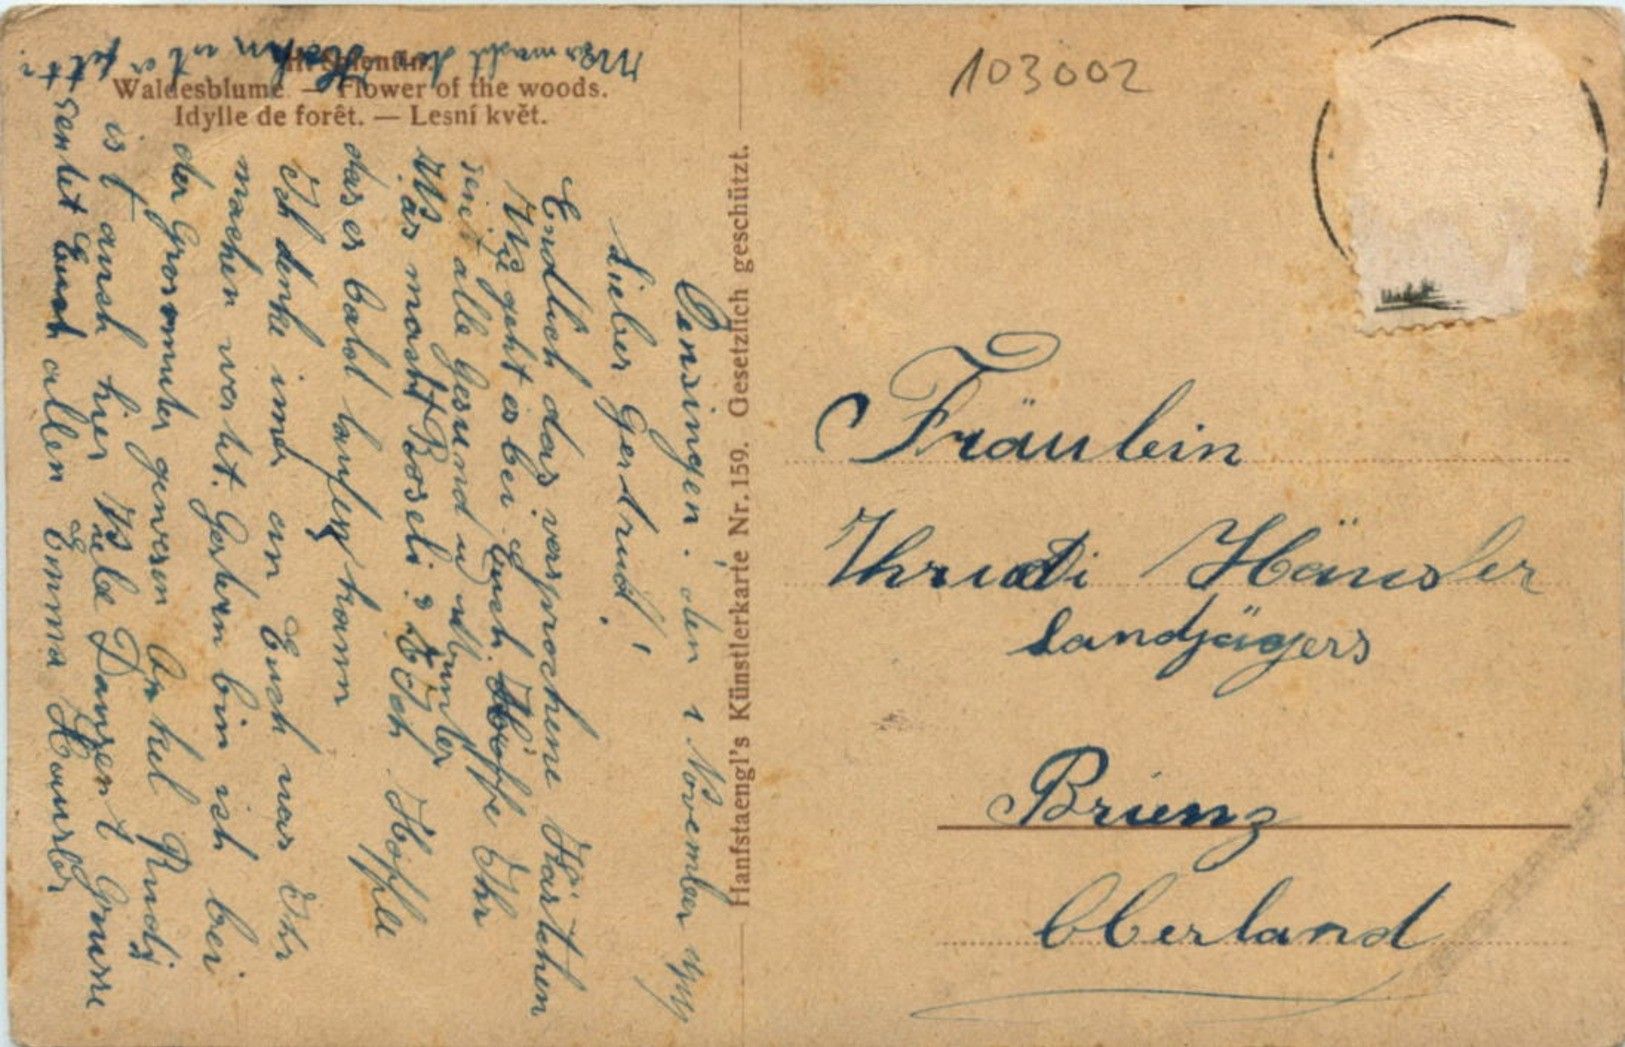 Waldesblume. — Flower of the woods.
Idylle de forêt. — Lesní květ.
103002
Hanfstaengl's Künstlerkarte Nr. 159. Gesetzlich geschützt.
Oensingen. den 1 November
Lieber Gertrud!
Endlich das versprochene Kärtchen
Wie geht es bei Euch. Hoffe Ihr
seint alle Gesund u Munter
Was macht Roseli? Ich Hoffe
das er bald laufen kann
Ich denke imer an Euch was Ihr
machen werht. Gestern bin ich bei
der Grosmuter gewesen Onkel Rudi
ist auch hier Is liebe Grüsse
sentet Euch allen Emma Häusler
Fräulein
Thrudi Häusler
Landjägers
Brienz
Oberland